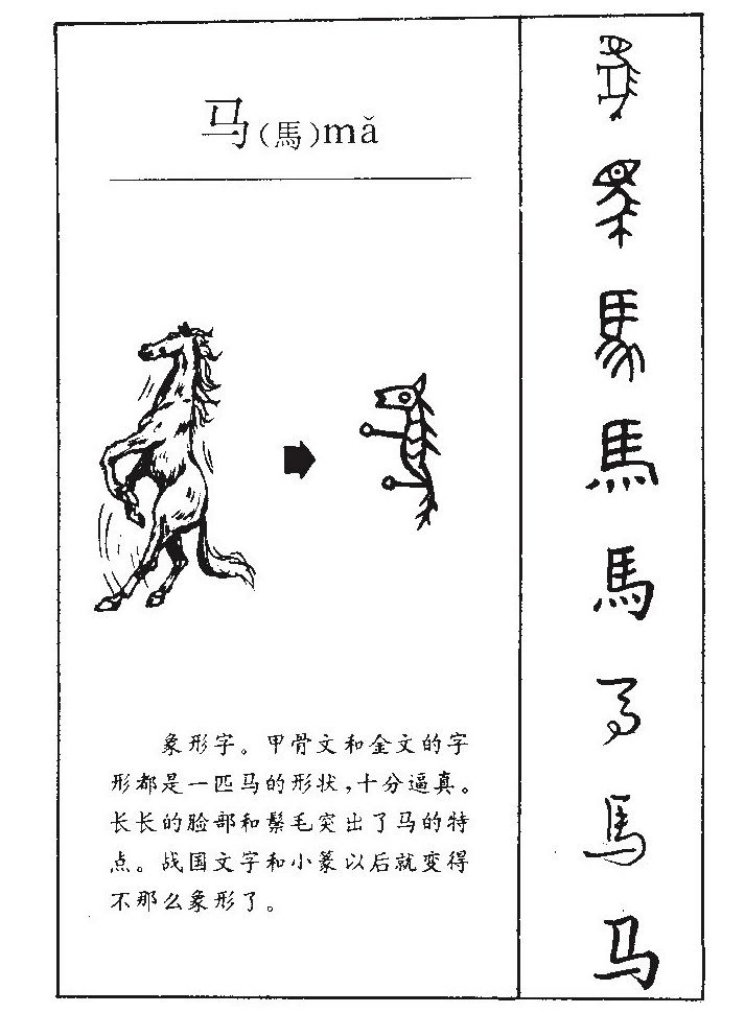 马(馬)mǎ
象形字。甲骨文和金文的字
形都是一匹马的形状,十分逼真。
长长的脸部和鬃毛突出了马的特
点。战国文字和小篆以后就变得
不那么象形了。
馬
馬
馬
馬
馬
马